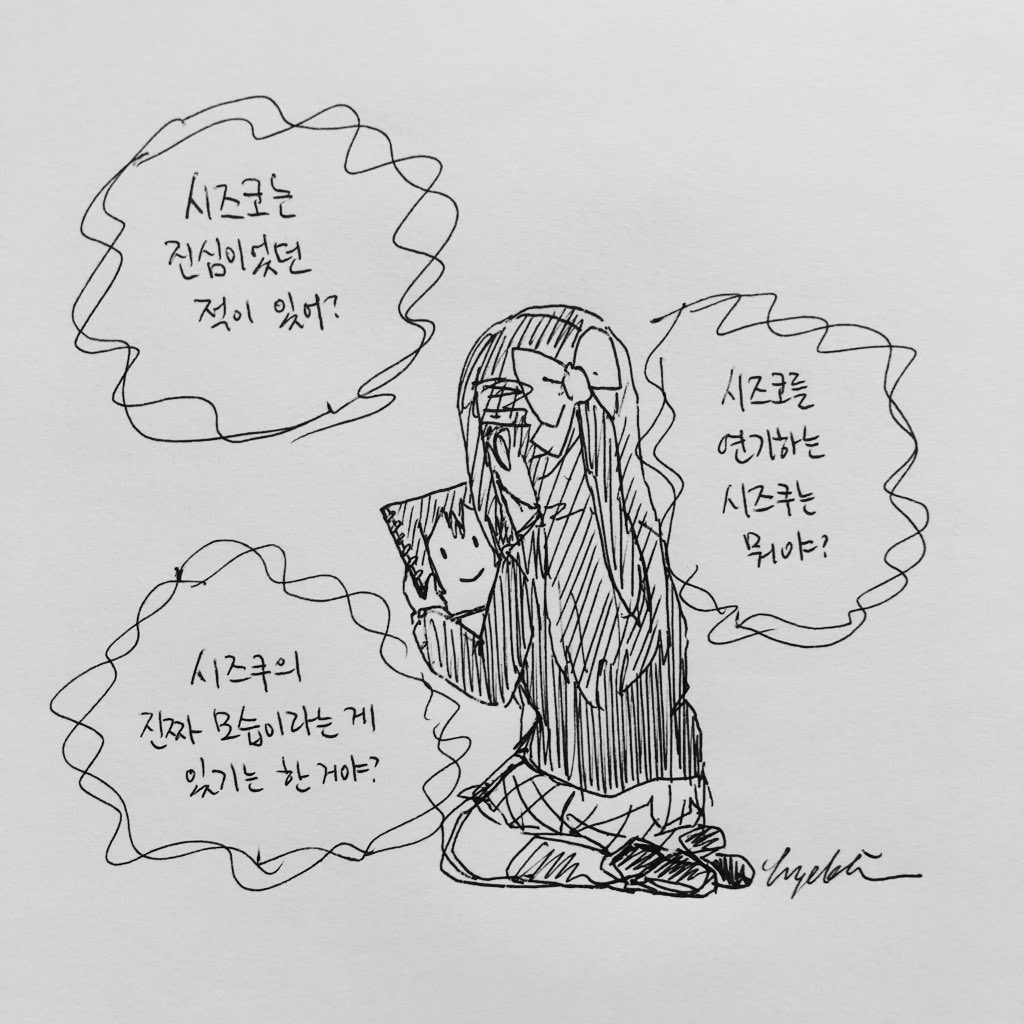 시즈코는
진심이었던
적이 있어?
시즈코를
연기하는
시즈쿠는
뭐야?
시즈쿠의
진짜 모습이라는 게
있기는 한 거야?